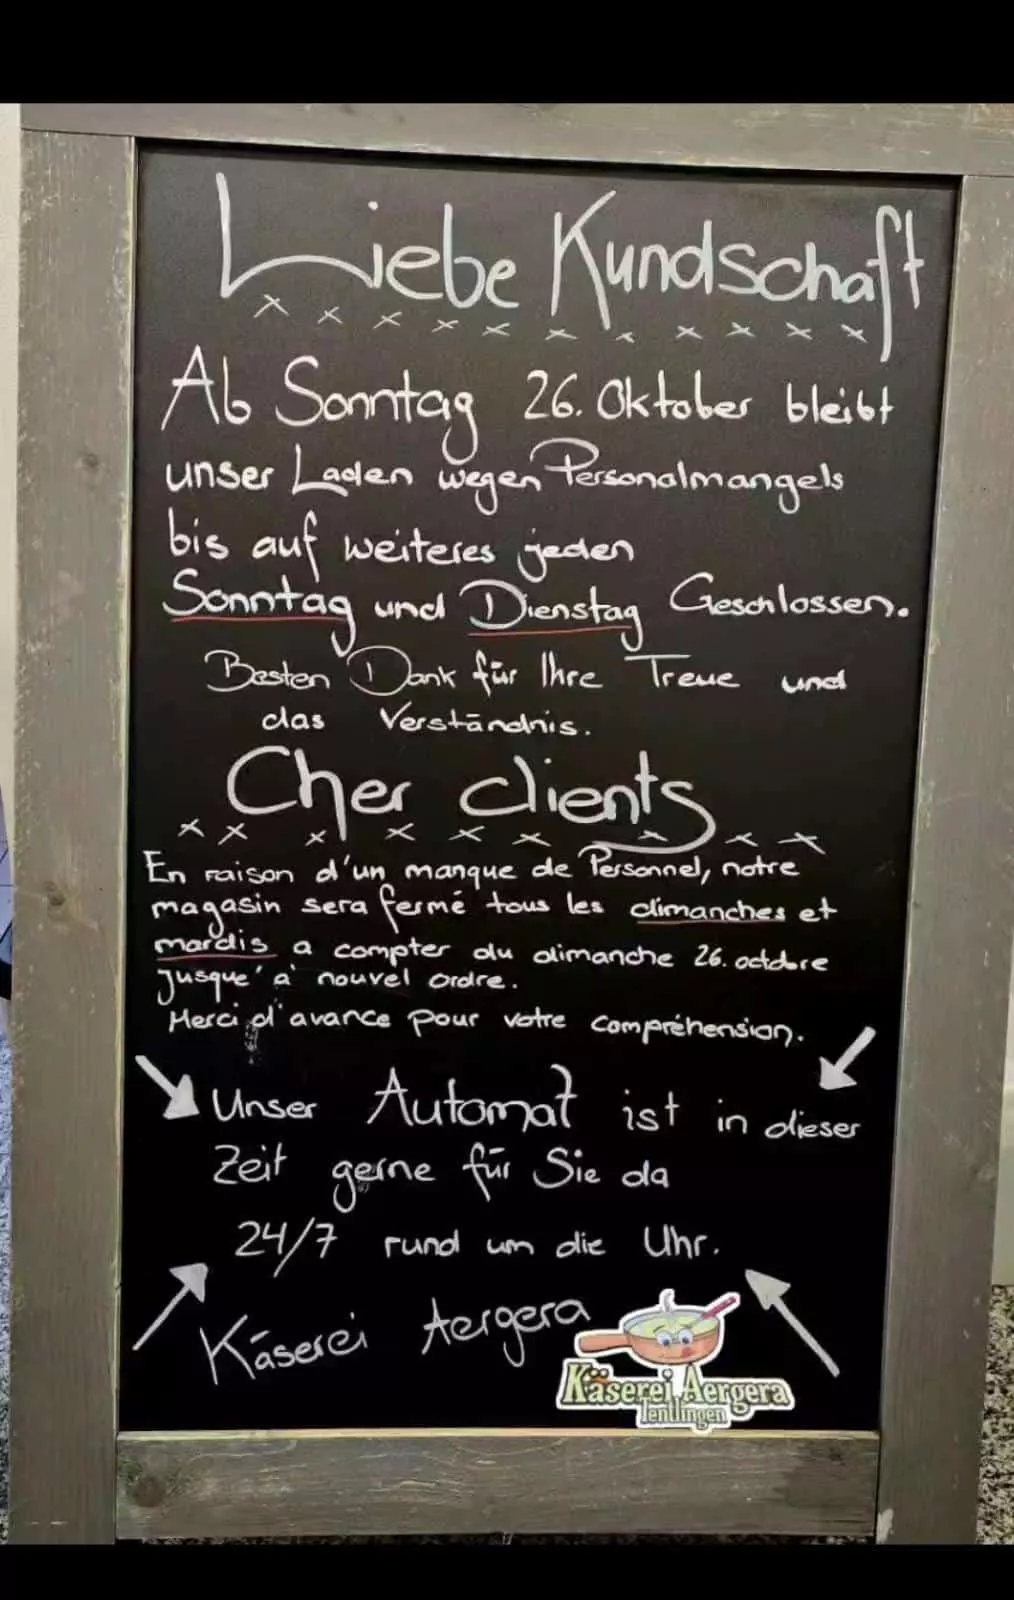 Liebe Kundschaft
Ab Sonntag 26. Oktober bleibt
unser Laden wegen Personalmangels
bis auf weiteres jeden
Sonntag und Dienstag Geschlossen.
Besten Dank für Ihre Treue und
das Verständnis.
Cher clients
En raison d'un manque de Personnel, notre
magasin sera fermé tous les dimanches et
mardis a compter du dimanche 26. octobre
jusque' a' nouvel ordre.
Merci d'avance pour votre compréhension.
Unser Automat ist in dieser
Zeit gerne für Sie da
24/7 rund um die Uhr.
Käserei Aergera
Käserei Aergera
Tentlingen